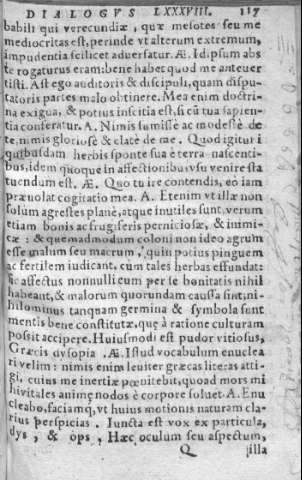 DIALOGVS LXXXVIII. 117
babili qui verecundiæ, quæ mesotes seu me
mediocritas est, perinde vt alterum extremum,
impudentia scilicet aduersatur. Æ. Id ipsum abs
te rogaturus eram: bene habet quod me anteuer
tisti. Ast ego auditoris & discipuli, quam dispu-
tatoris partes malo obtinere. Mea enim doctri-
na exigua, & potius inscitia est, si cū tua sapien-
tia conferatur. A. Nimis summisè ac modestè de
te, nimis gloriosè & elatè de me. Quod igitur i
quibusdam herbis sponte sua è terra nascenti-
bus, idem quoque in affectionibus vsu venire sta
tuendum est. Æ. Quo tu ire contendis, eò iam
præuolat cogitatio mea. A. Etenim vt illæ non
solum agrestes planè, atque inutiles sunt, verum
etiam bonis ac frugiferis perniciosæ, & inimi-
cæ: & quemadmodum coloni non ideo agrum
esse malum seu macrum, quin potius pinguem
ac fertilem iudicant, cùm tales herbas effundat:
sic affectus nonnulli cum per se bonitatis nihil
habeant, & malorum quorundam caussa sint, ni-
hilominus tanquam germina & symbola sunt
mentis bene constitutæ, quę à ratione culturam
possit accipere. Huiusmodi est pudor vitiosus,
Græcis dysopia. Æ. Istud vocabulum enuclea
ri velim: nimis enim leuiter græcas literas atti-
gi, cuius me inertiæ pœnitebit, quoad mors mi
hi vitales animę nodos è corpore soluet. A. Enu
cleabo, faciamq, vt huius motionis naturam cla-
rius perspicias. Iuncta est vox ex particula,
dys, & ops, Hæc oculum seu aspectum,
Q illa